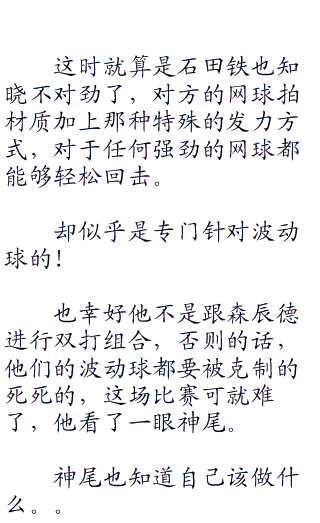 这时就算是石田铁也知
晓不对劲了，对方的网球拍
材质加上那种特殊的发力方
式，对于任何强劲的网球都
能够轻松回击。
却似乎是专门针对波动
球的！
也幸好他不是跟森辰德
进行双打组合，否则的话，
他们的波动球都要被克制的
死死的，这场比赛可就难
了，他看了一眼神尾。
神尾也知道自己该做什
么。。